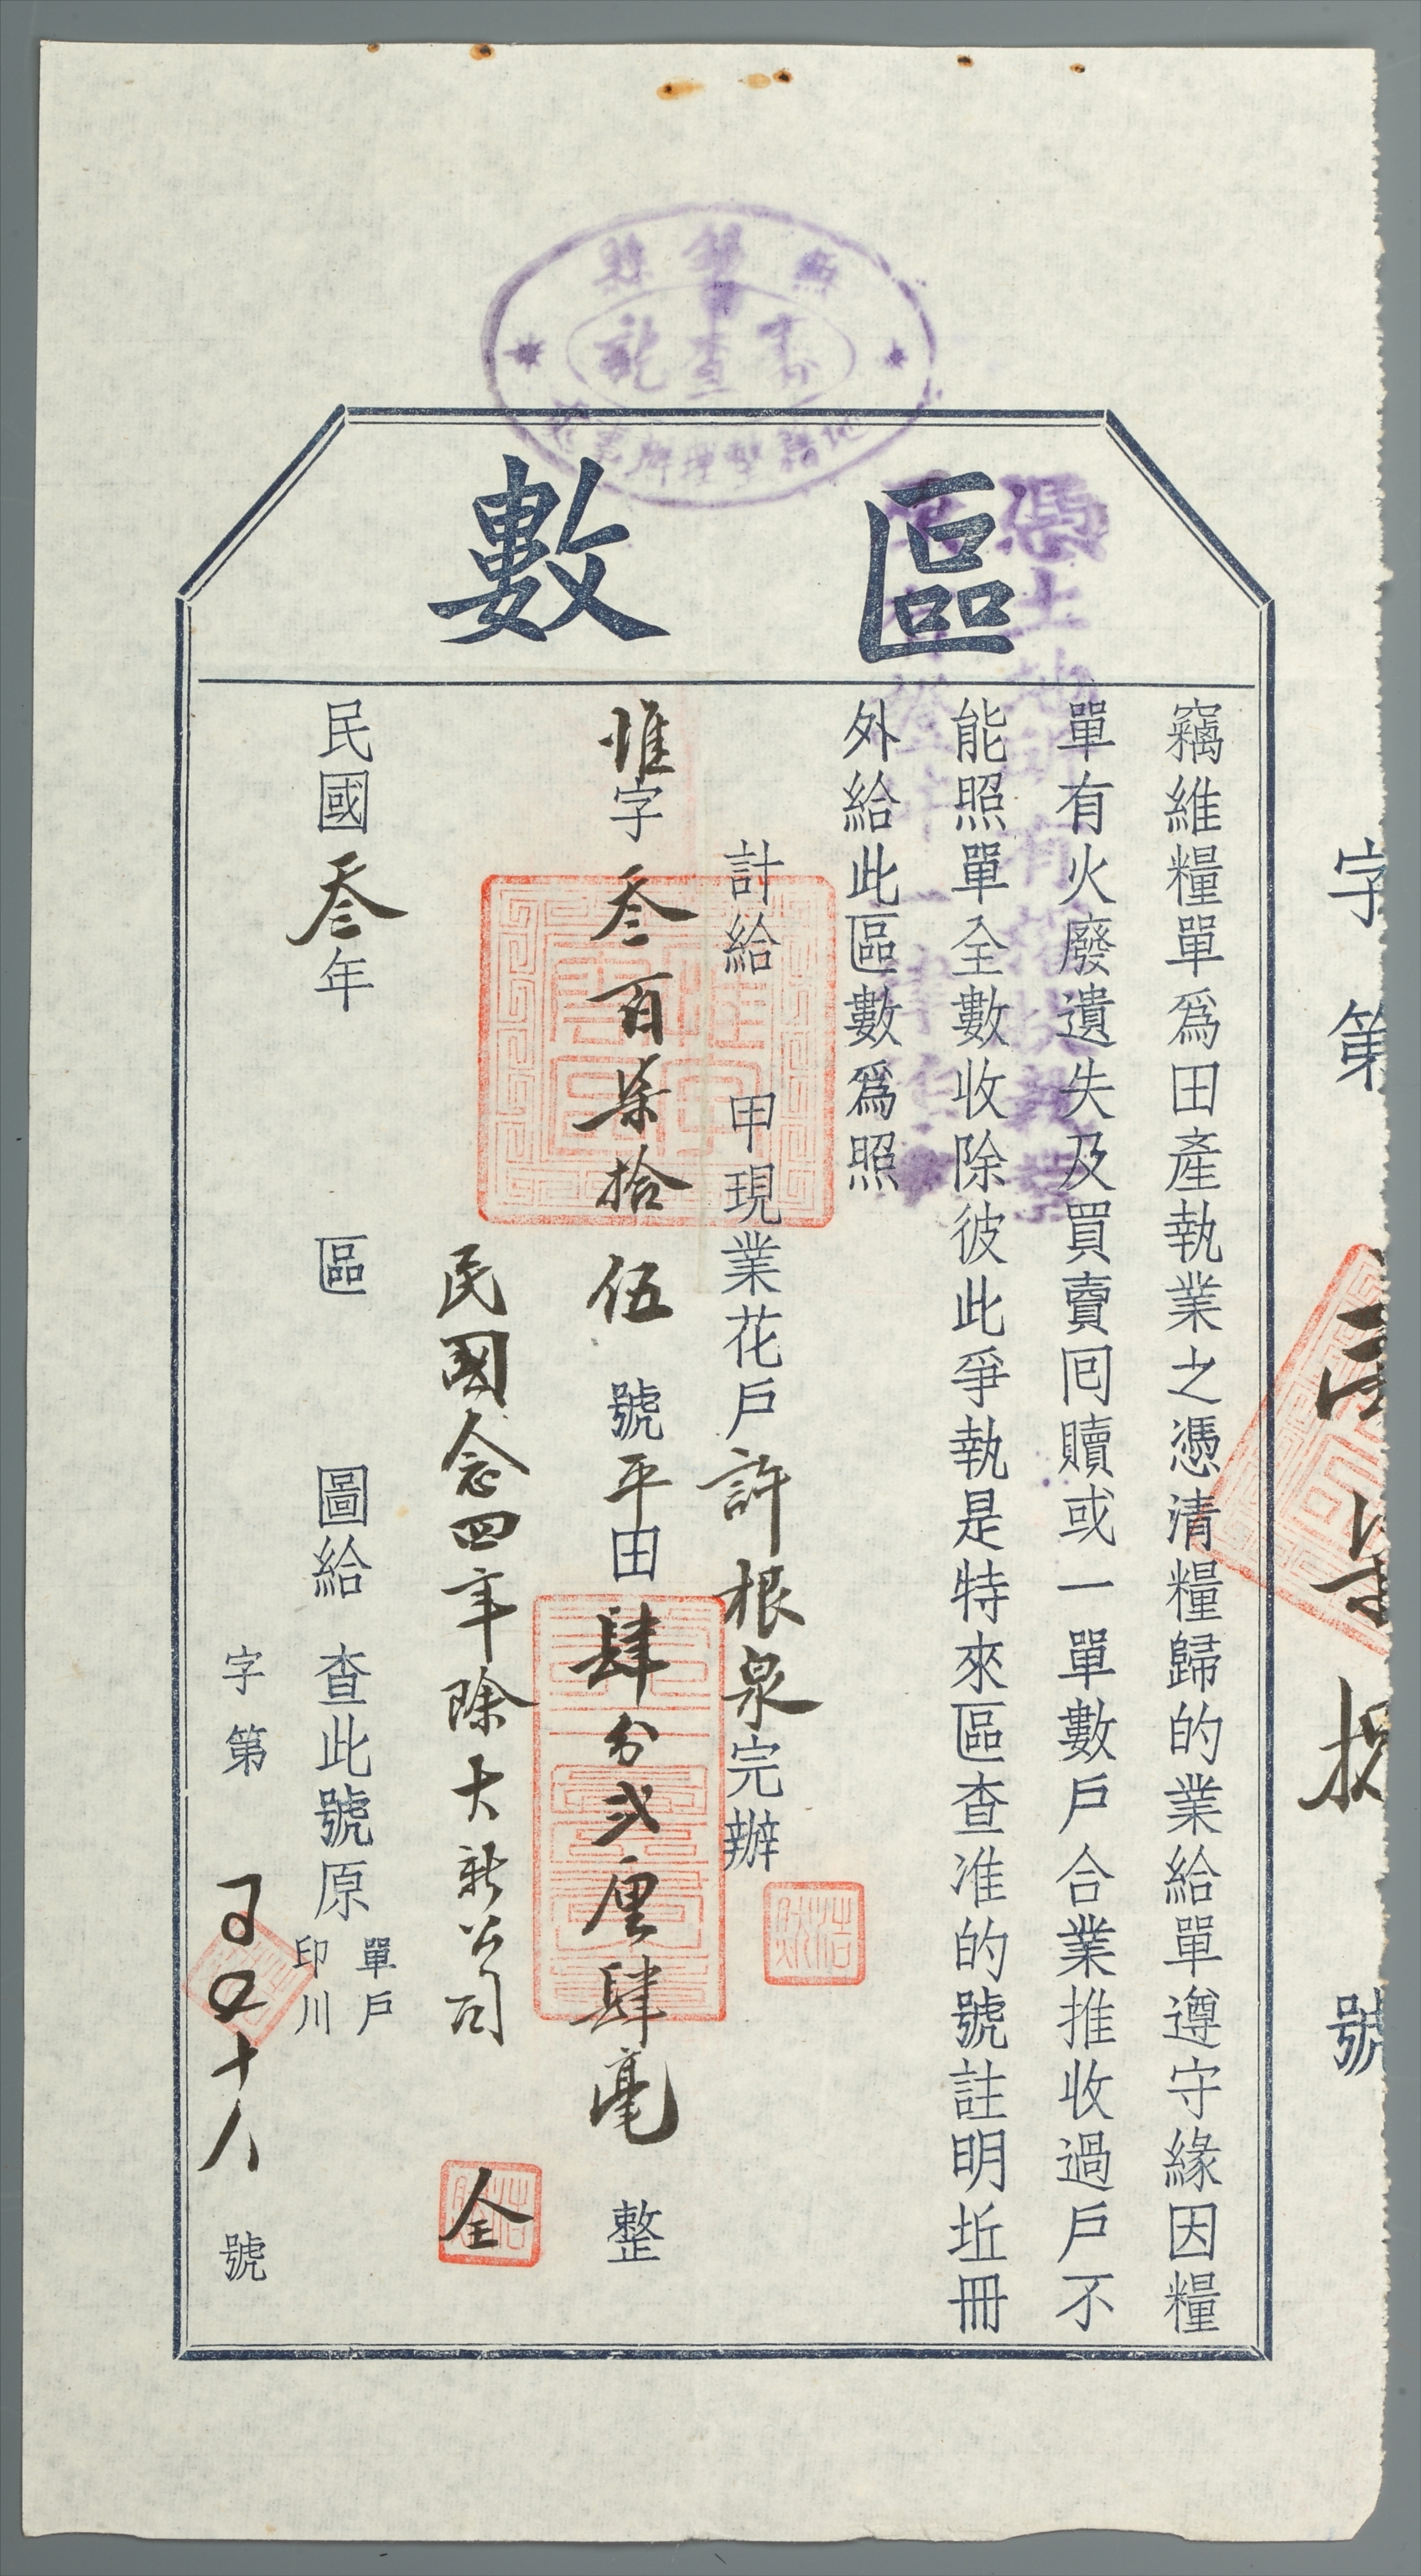 區數
竊維糧單爲田產執業之憑清糧歸的業給單遵守緣因糧
單有火廢遺失及買賣回贖或一單數戶合業推收過戶不
能照單全數收除彼此爭執是特來區查准的號註明坵冊
外給此區數爲照
計給 甲現業花戶許根泉完辦
惟字叁百柒拾伍號平田肆分弍厘肆毫整
民國念四年除大新公司 全
民國叁年 區 圖給 查此號原單戶印川
字第 十八號
字第 號
無錫縣
查訖
地籍整理辦事處
憑土地所有